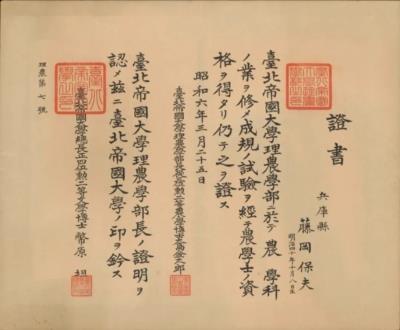 證書
兵庫縣
藤岡保夫
明治四十年十月八日生
臺北帝國大學理農學部ニ於テ農學科
ノ業ヲ修メ成規ノ試驗ヲ經テ農學士ノ資
格ヲ得タリ仍テ之ヲ證ス
昭和六年三月二十五日
臺北帝國大學理農學部長
臺北帝國大學理農學部長ノ證明ヲ
認メ茲ニ臺北帝國大學ノ印ヲ鈐ス
臺北帝國大學總長正四位勲二等文學博士幣原坦
理農第七號